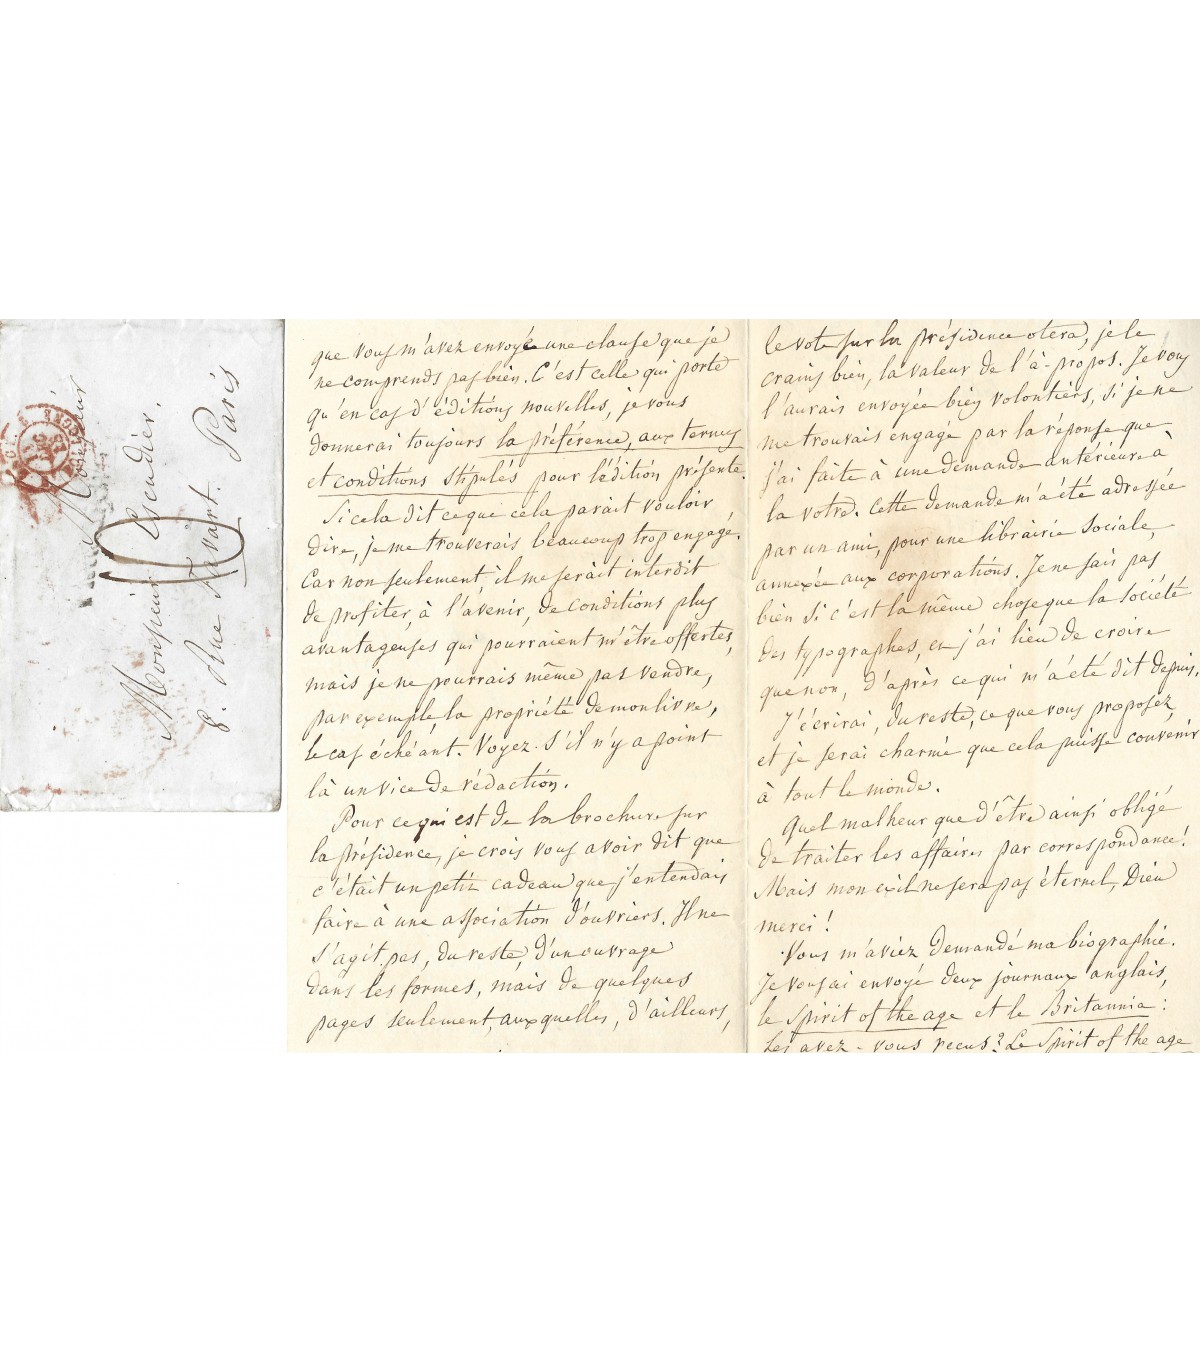 Monsieur
Monsieur Escudier.
8. Rue Favart. Paris
10
que vous m'avez envoyé une clause que je
ne comprends pas bien. C'est celle qui porte
qu'en cas d'éditions nouvelles, je vous
donnerai toujours la préférence, aux termes
et conditions stipulés pour l'édition présente.
Si cela dit ce que cela parait vouloir
dire, je me trouverais beaucoup trop engagé.
Car non seulement, il me serait interdit
de profiter, à l'avenir, de conditions plus
avantageuses qui pourraient m'être offertes,
mais je ne pourrais même pas vendre,
par exemple, la propriété de mon livre,
le cas échéant. Voyez s'il n'y a point
là un vice de rédaction.
Pour ce qui est de la brochure sur
la présidence, je crois vous avoir dit que
c'était un petit cadeau que j'entendais
faire à une association d'ouvriers. Il ne
s'agit pas, du reste, d'un ouvrage
dans les formes, mais de quelques
pages seulement, auxquelles, d'ailleurs,
le vote sur la présidence otera, je le
crains bien, la valeur de l'à-propos. Je vous
l'aurais envoyée bien volontiers, si je ne
me trouvais engagé par la réponse que
j'ai faite à une demande antérieure à
la votre. Cette demande m'a été adressée
par un ami, pour une librairie sociale,
annexée aux corporations. Je ne sais pas
bien si c'est la même chose que la société
des typographes, et j'ai lieu de croire
que non, d'après ce qui m'a été dit depuis.
J'écrirai, du reste, ce que vous proposez,
et je serai charmé que cela puisse convenir
à tout le monde.
Quel malheur que d'être ainsi obligé
de traiter les affaires par correspondance!
Mais mon exil ne sera pas éternel, Dieu
merci!
Vous m'aviez demandé ma biographie.
Je vous ai envoyé deux journaux anglais,
le Spirit of the age et le Britannia:
Les avez-vous reçus? Le Spirit of the age